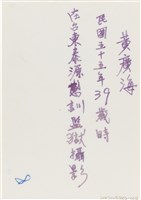 黃廣海
民國五十五年39歲時
在台東泰源感訓監獄攝影